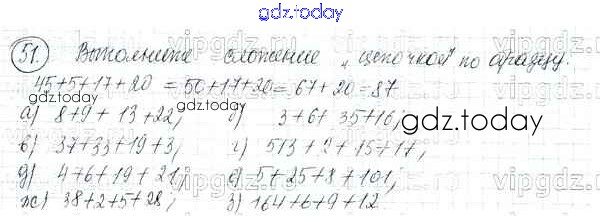 gdz.today
51. Выполните сложение „цепочкой" по образцу.
45+5+17+20 = 50+17+20 = 67+20=87
а) 8+9+13+22; б) 3+6+35+16;
в) 37+33+19+3; г) 513+2+15+17;
д) 4+6+19+21; е) 5+25+8+101;
ж) 38+2+5+28; з) 164+6+9+12
gdz.today
gdz.today
gdz.today